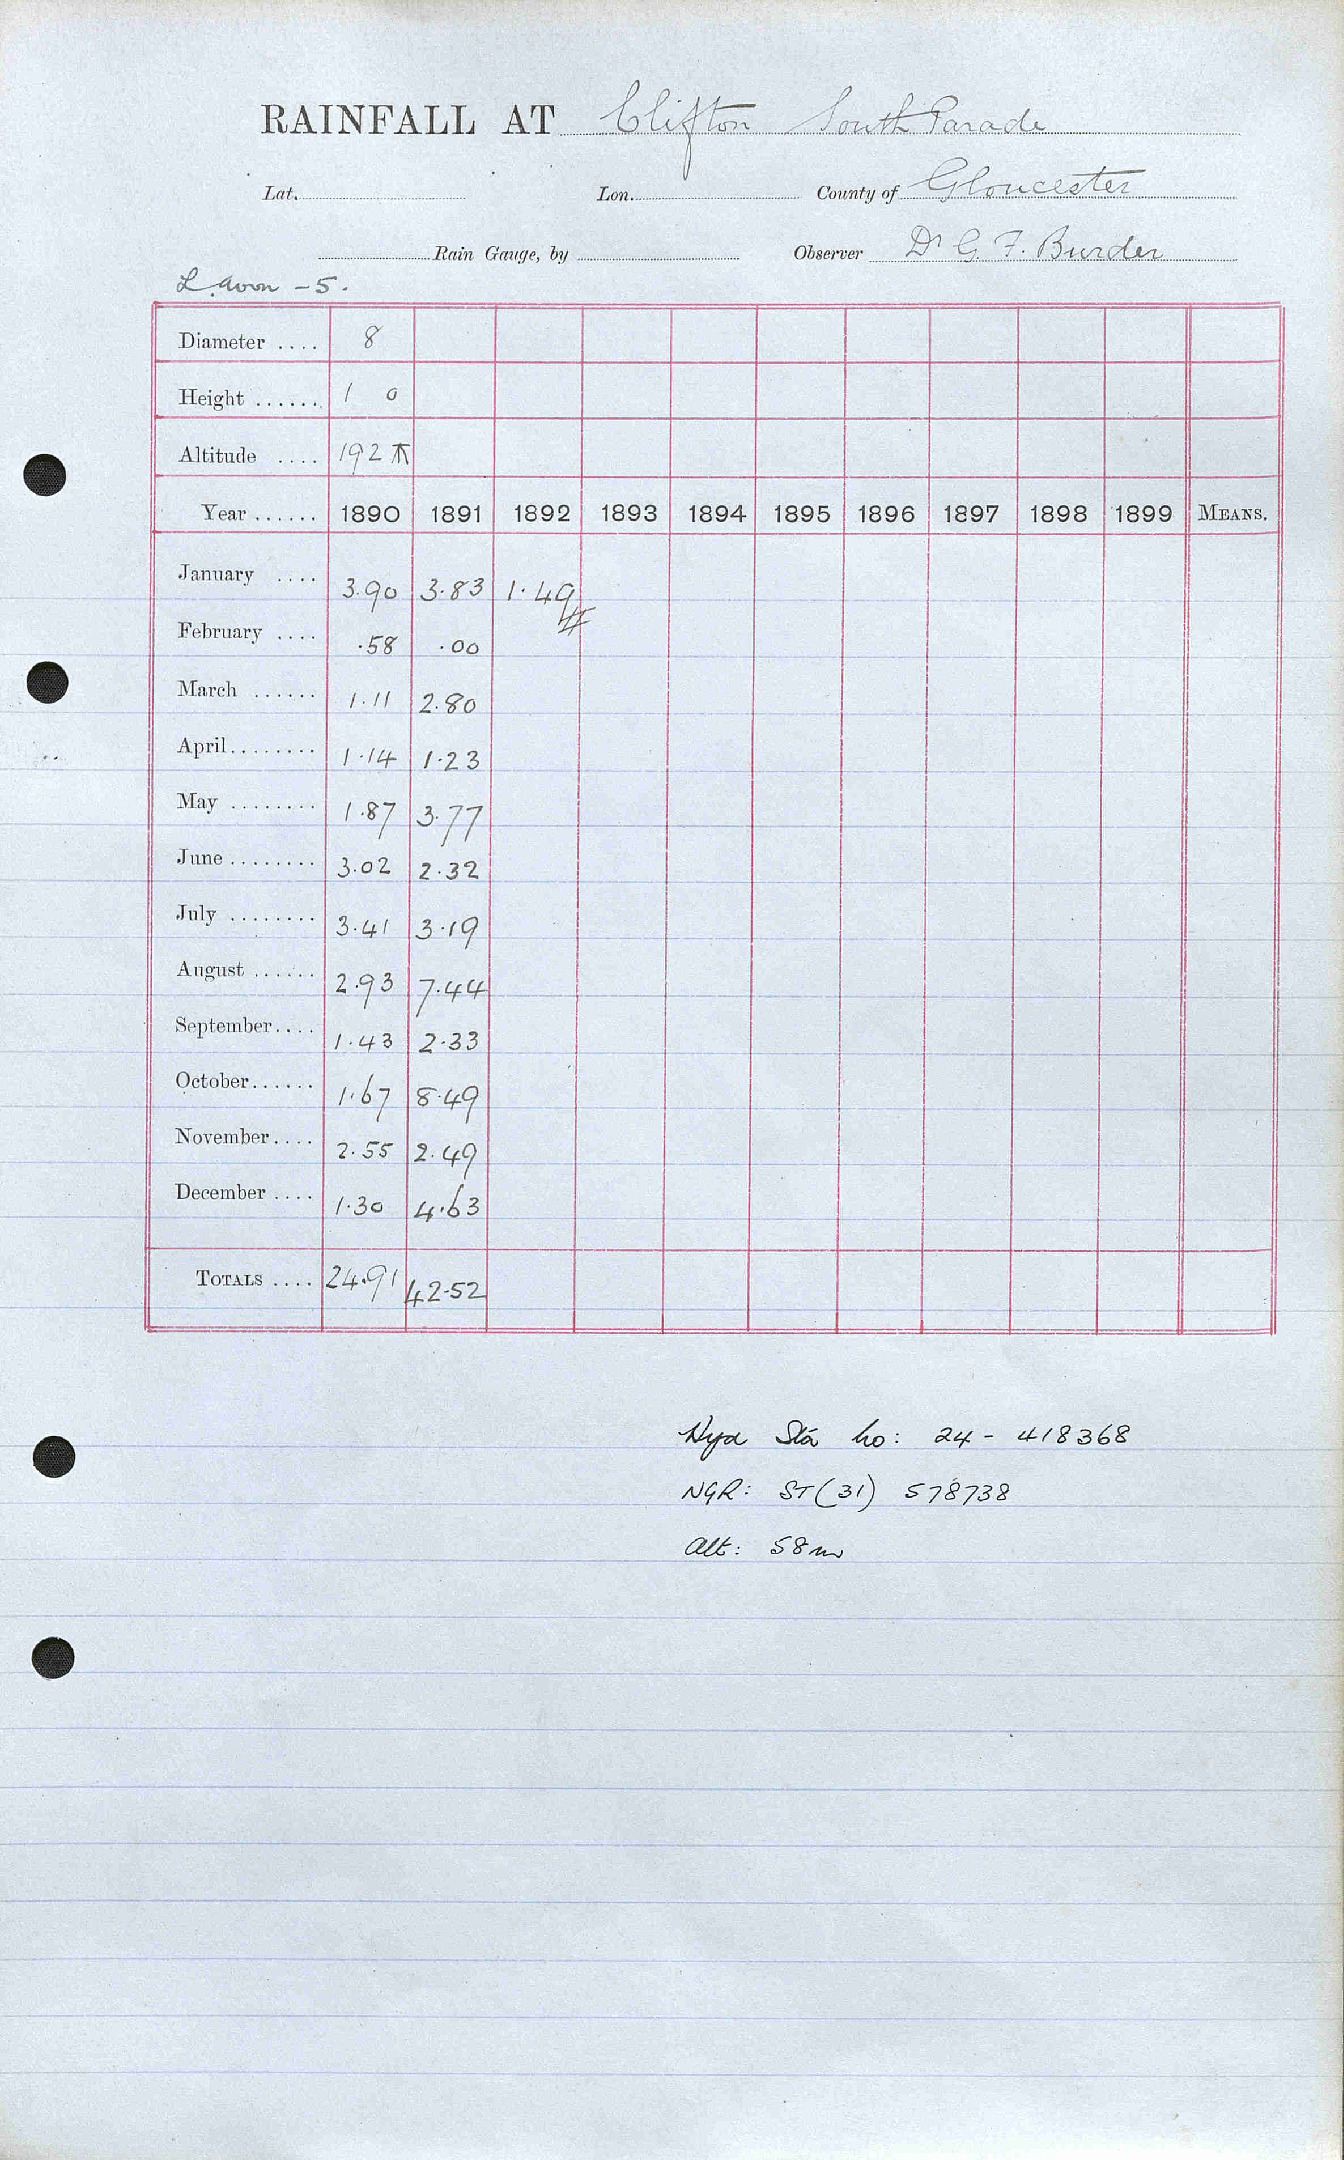 RAINFALL AT Clifton South Parade
Lat. Lon. County of Gloucester
Rain Gauge, by Observer Dr G. F. Burder
L. Avon - 5.
Diameter .... 8
Height ...... 1 0
Altitude .... 192
Year ...... 1890 1891 1892 1893 1894 1895 1896 1897 1898 1899 MEANS.
January .... 3.90 3.83 1.49
February .... .58 .00
March ...... 1.11 2.80
April........ 1.14 1.23
May ........ 1.87 3.77
June ........ 3.02 2.32
July ........ 3.41 3.19
August ...... 2.93 7.44
September.... 1.43 2.33
October...... 1.67 8.49
November.... 2.55 2.49
December .... 1.30 4.63
TOTALS .... 24.91 42.52
Hyd Sta no: 24 - 418368
NGR: ST(31) 578738
Alt: 58m